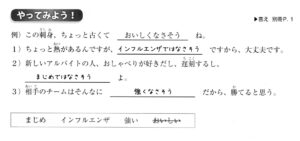 やってみよう！
▶答え 別冊P. 1
例）この刺身、ちょっと古くて おいしくなさそう ね。
1）ちょっと熱があるんですが、インフルエンザではなさそう ですから、大丈夫です。
2）新しいアルバイトの人、おしゃべりが好きだし、遅刻するし、
まじめではなさそう よ。
3）相手のチームはそんなに 強くなさそう だから、勝てると思う。
まじめ インフルエンザ 強い おいしい